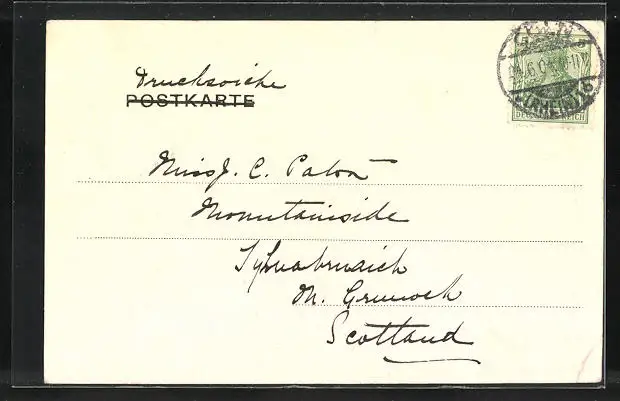 Drucksache
POSTKARTE
DEUTSCHES REICH
(RHEIN)
Miss J. C. Paton
Mountainside
Tighnabruaich
N. Greenock
Scotland